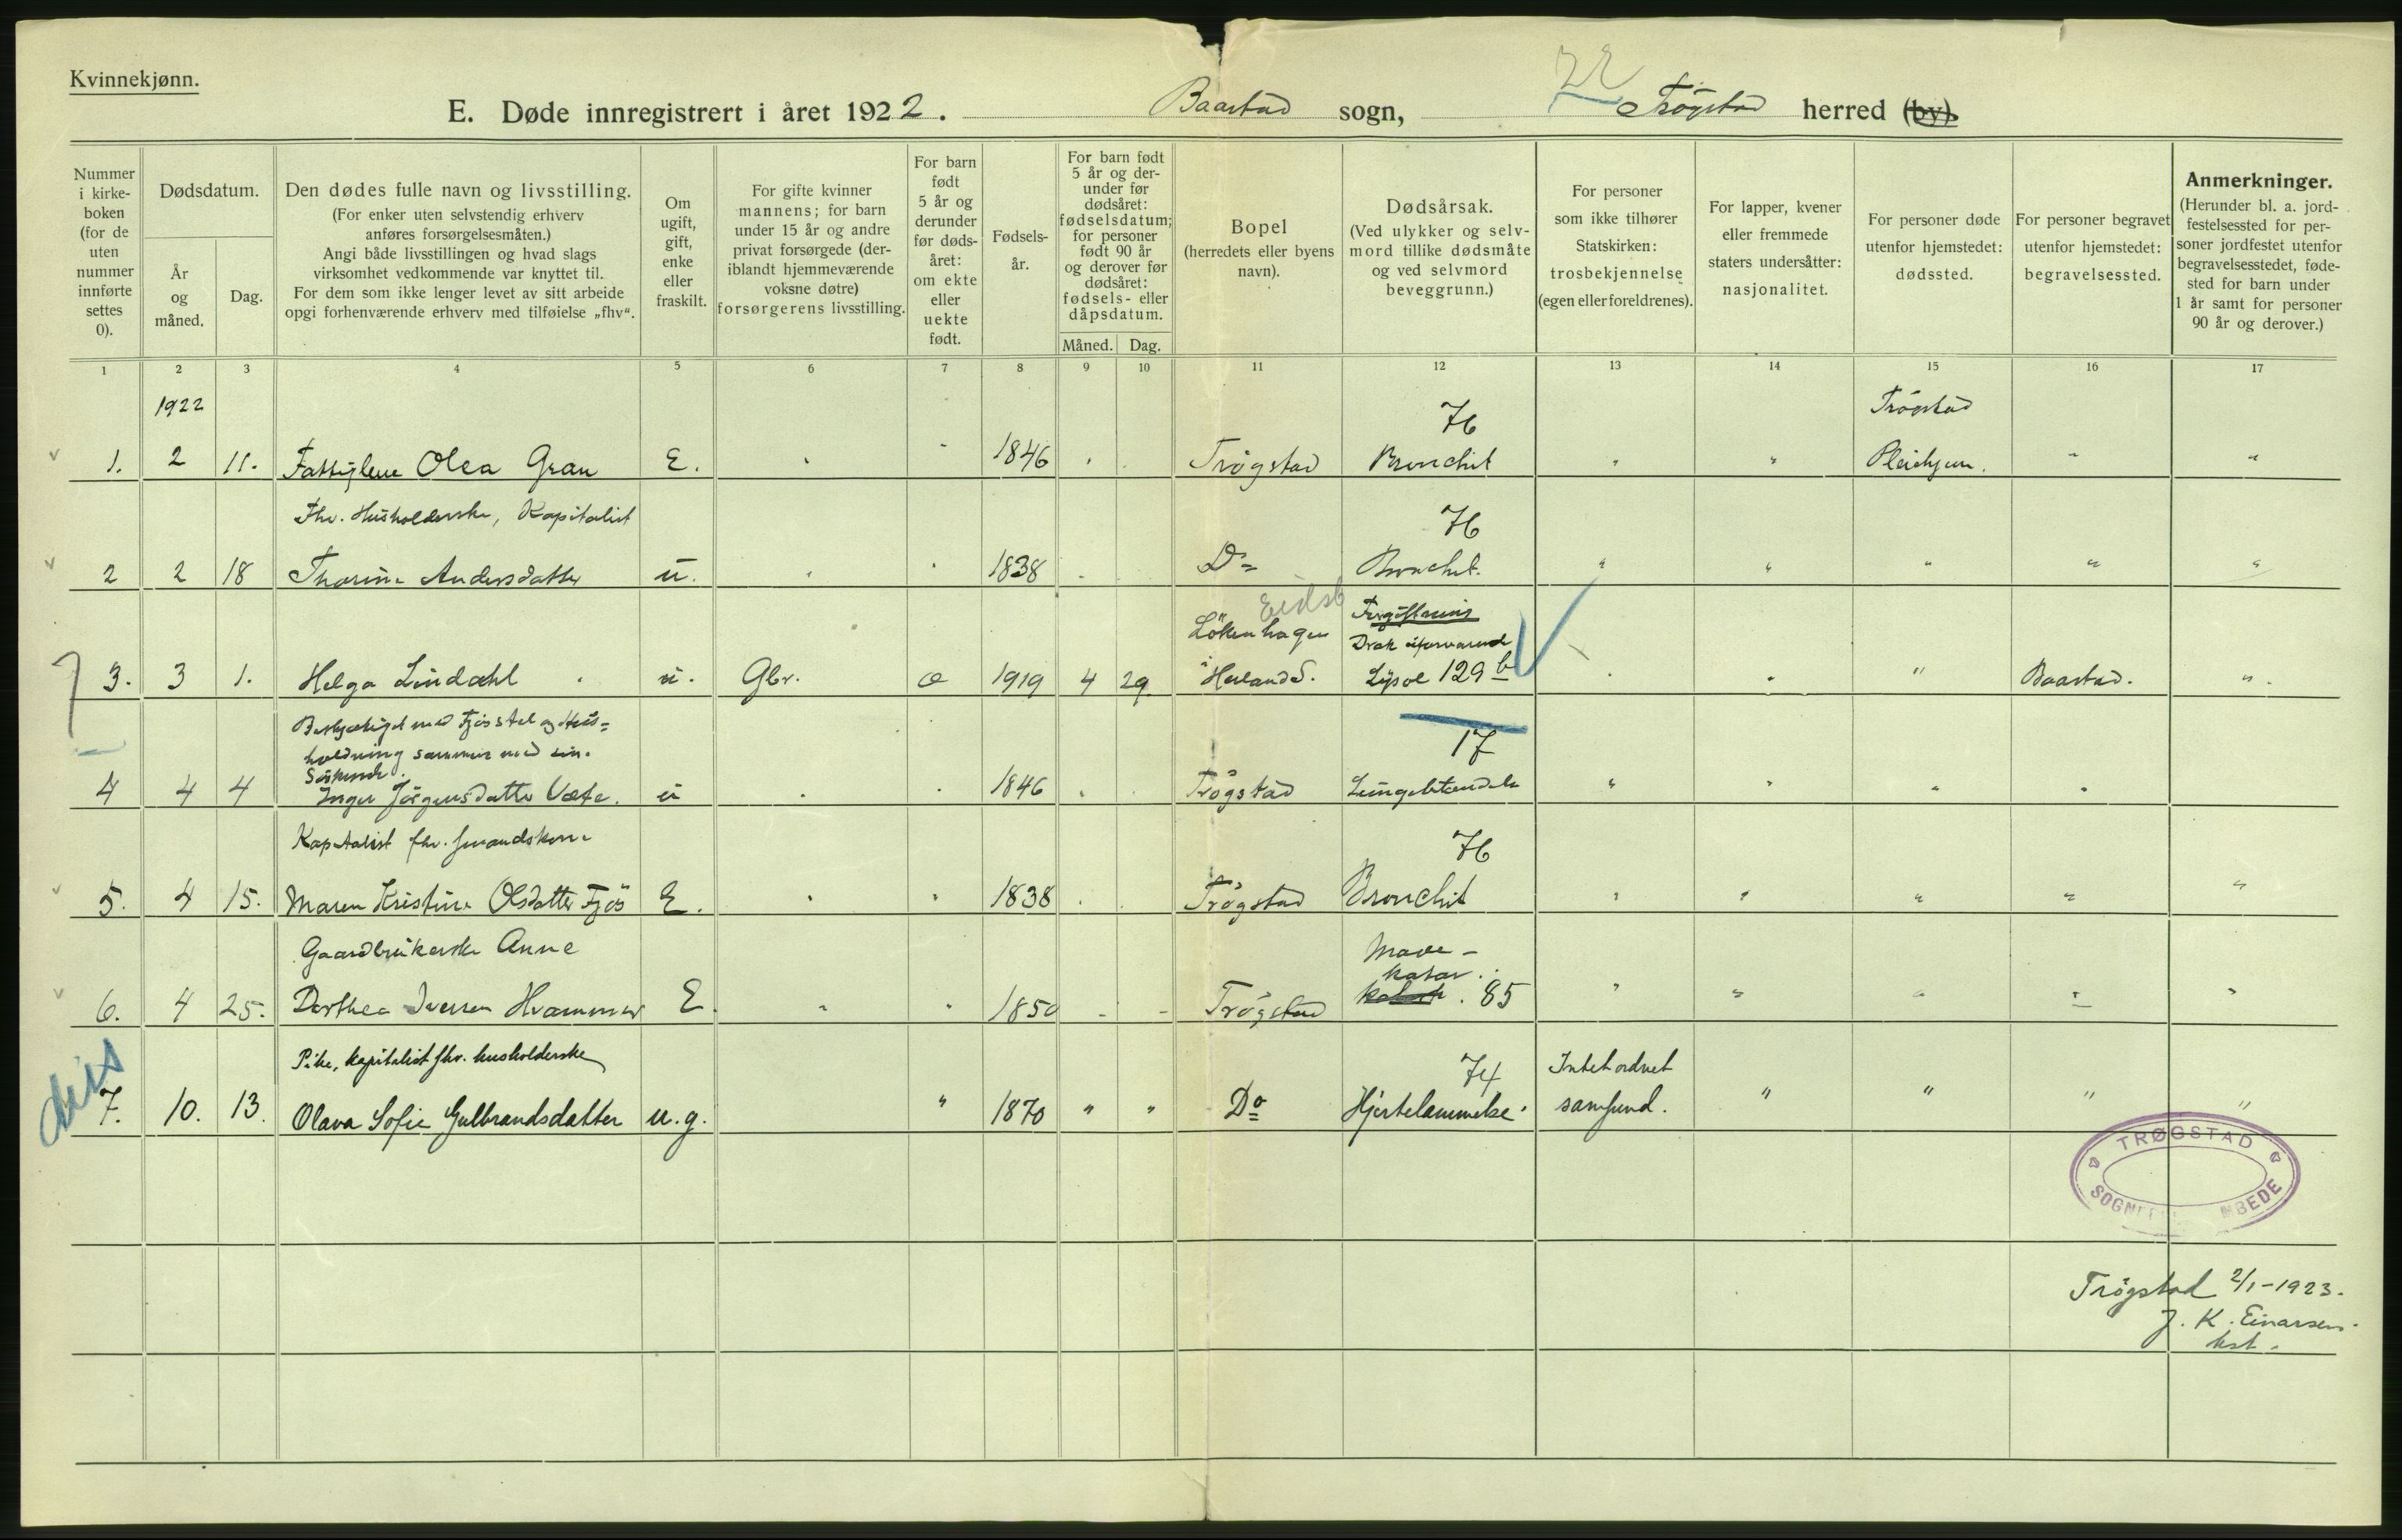 Kvinnekjønn.
E. Døde innregistrert i året 1922. Baastad sogn, 22 Trøgstad herred (by).
Nummer i kirkeboken (for de uten nummer innførte settes 0).
Dødsdatum.
År og måned.
Dag.
Den dødes fulle navn og livsstilling.
(For enker uten selvstendig erhverv
anføres forsørgelsesmåten.)
Angi både livsstillingen og hvad slags
virksomhet vedkommende var knyttet til.
For dem som ikke lenger levet av sitt arbeide
opgi forhenværende erhverv med tilføielse „fhv“.
Om
ugift,
gift,
enke
eller
fraskilt.
For gifte kvinner
mannens; for barn
under 15 år og andre
privat forsørgede (der-
iblandt hjemmeværende
voksne døtre)
forsørgerens livsstilling.
For barn
født
5 år og
derunder
før døds-
året:
om ekte
eller
uekte
født.
Fødsels-
år.
For barn født
5 år og der-
under før
dødsåret:
fødselsdatum;
for personer
født 90 år
og derover før
dødsåret:
fødsels- eller
dåpsdatum.
Måned. Dag.
Bopel
(herredets eller byens
navn).
Dødsårsak.
(Ved ulykker og selv-
mord tillike dødsmåte
og ved selvmord
beveggrunn.)
For personer
som ikke tilhører
Statskirken:
trosbekjennelse
(egen eller foreldrenes).
For lapper, kvener
eller fremmede
staters undersåtter:
nasjonalitet.
For personer døde
utenfor hjemstedet:
dødssted.
For personer begravet
utenfor hjemstedet:
begravelsessted.
Anmerkninger.
(Herunder bl. a. jord-
festelsessted for per-
soner jordfestet utenfor
begravelsesstedet, føde-
sted for barn under
1 år samt for personer
90 år og derover.)
1 2 3 4 5 6 7 8 9 10 11 12 13 14 15 16 17
1922 76 Trøgstad
1. 2 11. Fattiglem Olea Gran E. " 1846 Trøgstad Bronchit " " Pleiehjem. " "
Fhv. Husholderske, Kapitalist 76
2 2 18 Thorine Andersdatter u. 1838 Do Bronchit. " " " " "
Eidsb
Løkenhagen Forgiftning
Drak uforvarende
3. 3 1. Helga Lindahl u. Gbr. e 1919 4 29 i Herland S. Lysol 129 b " Baastad. "
Beskjæftiget med Fjøsstel og Hus=
holdning sammen med sin 17
Søskende.
4 4 4 Inger Jørgensdatter u 1846 Trøgstad Lungebetændelse " " " "
Kapitalist fhv. 76
5. 4 15. Maren Kristine Olsdatter Fjøs E. " 1838 Trøgstad Bronchit " " " " "
Gaardbrukerske Anne Mave-
katar.
6. 4 25. Dorthea Iversen Hvammer E. " " 1850 - - Trøgstad 85 " " " " "
Pike, kapitalist fhv. husholderske 74 Intet ordnet
diss
7. 10. 13. Olava Sofie Gulbrandsdatter u.g. " 1870 " " Do Hjertelammelse. samfund. " " " "
TRØGSTAD
SOGNE MBEDE
Trøgstad 2/1-1923.
J. K. Einarsen.
kst.